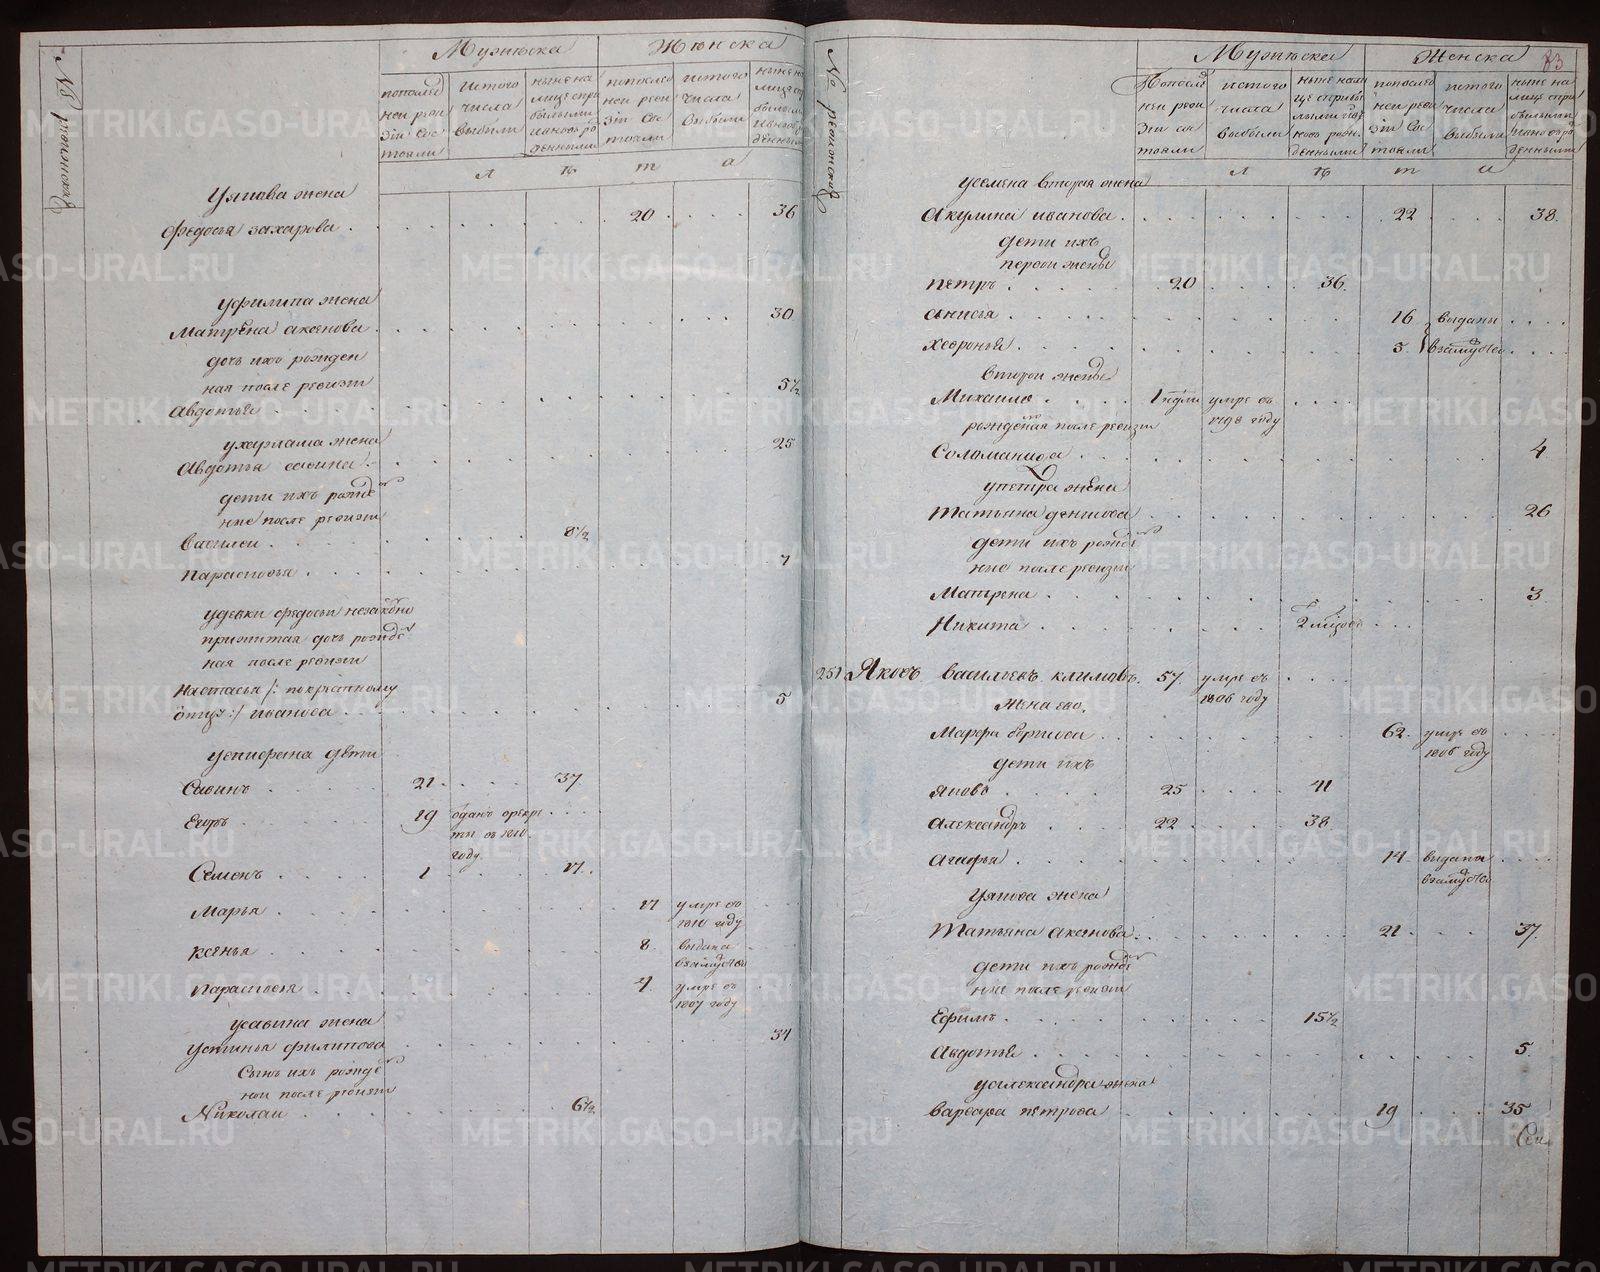 № ревизской
Мужеска
Женска
попослед ней реви зiи сос тояли
истого числа выбыли
ныне на лице спри былыми и новоро жденными
попослед ней реви зiи сос тояли
истого числа выбыли
лѣта
Уянова жена
Федосья захарова . 20 36
уфилипа жена
Матрена аксенова 30
дочь ихъ рожден
ная после ревизiи
Авдотья 5½
ухарлама жена
Авдотья савина 25
дети ихъ рожде
ные после ревизiи
Василеи 8½
Парасковья 7
удевки федосьи незаконно
прижитая дочь рожде
ная после ревизiи
Настасья /: покрестному
отцу :/ иванова 5
уепифана дети
Савинъ 21 37
Егоръ 19 отданъ врекру
ты въ 1810
году
Семенъ 1 17
Марья 17 умре въ
1810 году
Ксенья 8 выдана
взамужество
Парасковья 4 умре въ
1807 году
усавина жена
Устинья филипова 34
Сынъ ихъ рожде
нои после ревизiи
Николаи 6½
83
№ ревизской
Мужеска
Женска
Попослед ней реви зiи сос тояли
истого числа выбыли
попослед ней реви зiи сос тояли
истого числа выбыли
ныне на лице спри былыми и новоро жденными
лѣта
усемена вторая жена
Акулина иванова 22 38
дети ихъ
первои жены
Петръ 20 36
Анисья 16 выданы
Хевронья 5 взамужество
второи жены
Михаило 1 недели умре въ
1798 году
рожденая после ревизiи
Соломанида 4
упетра жена
Татьяна денисова 26
дети ихъ рожде
ные после ревизiи
Матрена 3
Никита 2 месяцовъ
251 Яковъ васильевъ климовъ 57 умре въ
1806 году
Жена ево
Марфа борисова 62 умре въ
1806 году
дети ихъ
Яково 25 41
Александръ 22 38
Агафья 14 выдана
взамужество
Уякова жена
Татьяна аксенова 21 37
дети ихъ рожде
ные после ревизiи
Ефимъ 15½
Авдотья 5
уалександра жена
варвара петрова 19 35